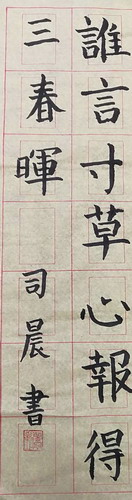 誰言寸草心報得
三春暉
司晨書